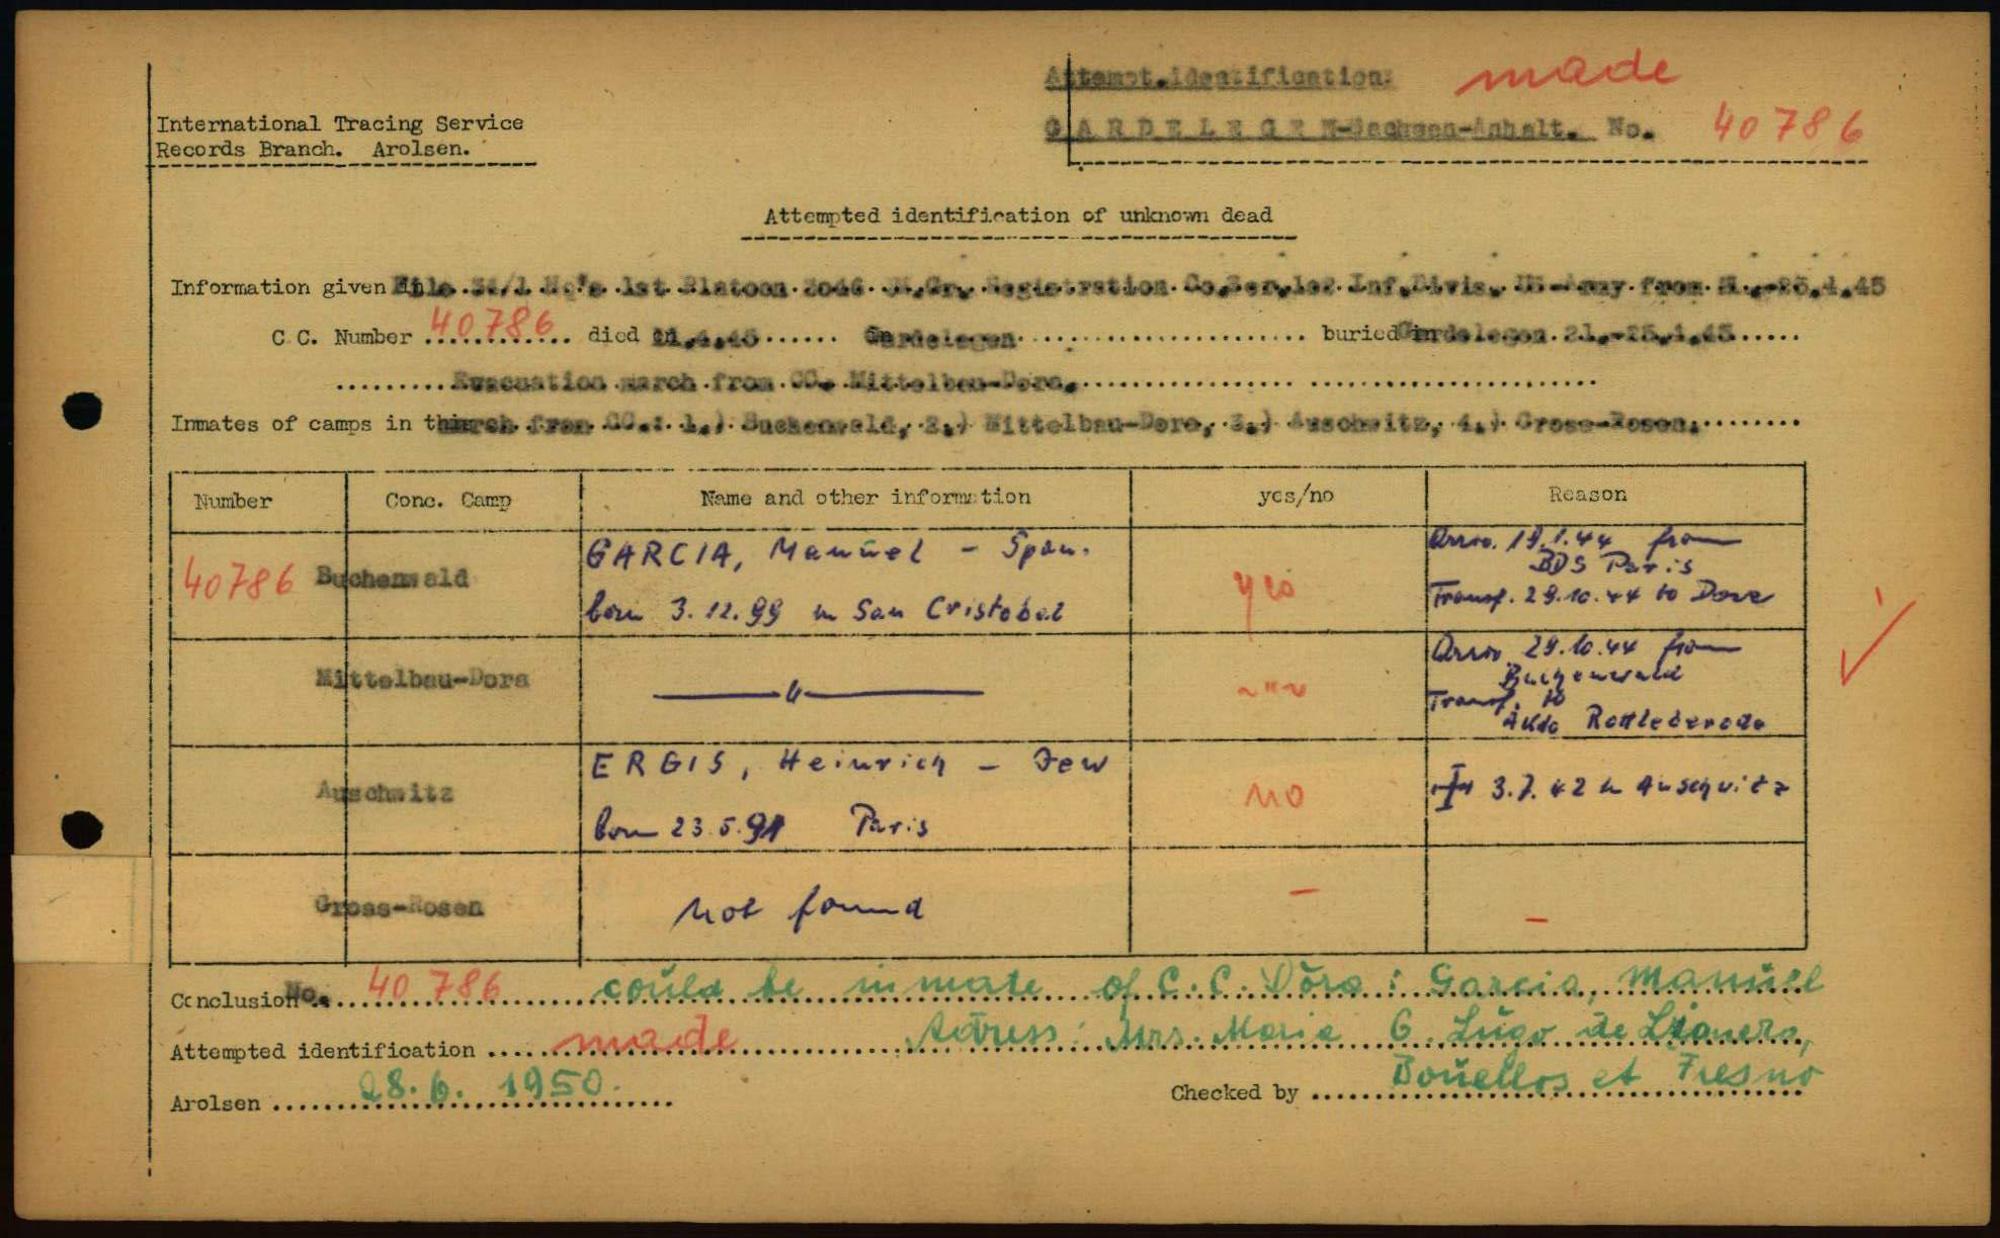 Attempt.identification: made
International Tracing Service
Records Branch. Arolsen.
GARDELEGEN-Sachsen-Anhalt. No. 40786
Attempted identification of unknown dead
Information given File 1st Platoon 3046 Gr. Registration Co. Ser, 102 Inf. Divis. US-Army from 21.-25.4.45
C.C. Number 40786 died Gardelegen buried in Gardelegen 21.-25.4.45
Evacuation march from CC. Mittelbau-Dora.
Inmates of camps in this march from CC.: 1.) Buchenwald, 2.) Mittelbau-Dora, 3.) Auschwitz, 4.) Gross-Rosen.
Number Conc. Camp Name and other information yes/no Reason
40786 Buchenwald GARCIA, Manuel - Span.
born 3.12.99 in San Cristobal
yes
Arriv. 19.1.44 from
BDS Paris
Transf. 29.10.44 to Dora
Mittelbau-Dora —"— ~"~
Arriv. 29.10.44 from
Buchenwald
Transf. to
AKdo Rottleberode
Auschwitz ERGIS, Heinrich - Jew
born 23.5.91 Paris
no
3.7.42 in Auschwitz
Gross-Rosen not found - -
Conclusion No. 40786 could be inmate of C.C. Dora: Garcia, Manuel
Attempted identification made Adress: Mrs. Maria G. Lugo de
Arolsen 28.6.1950. Checked by et Fresno